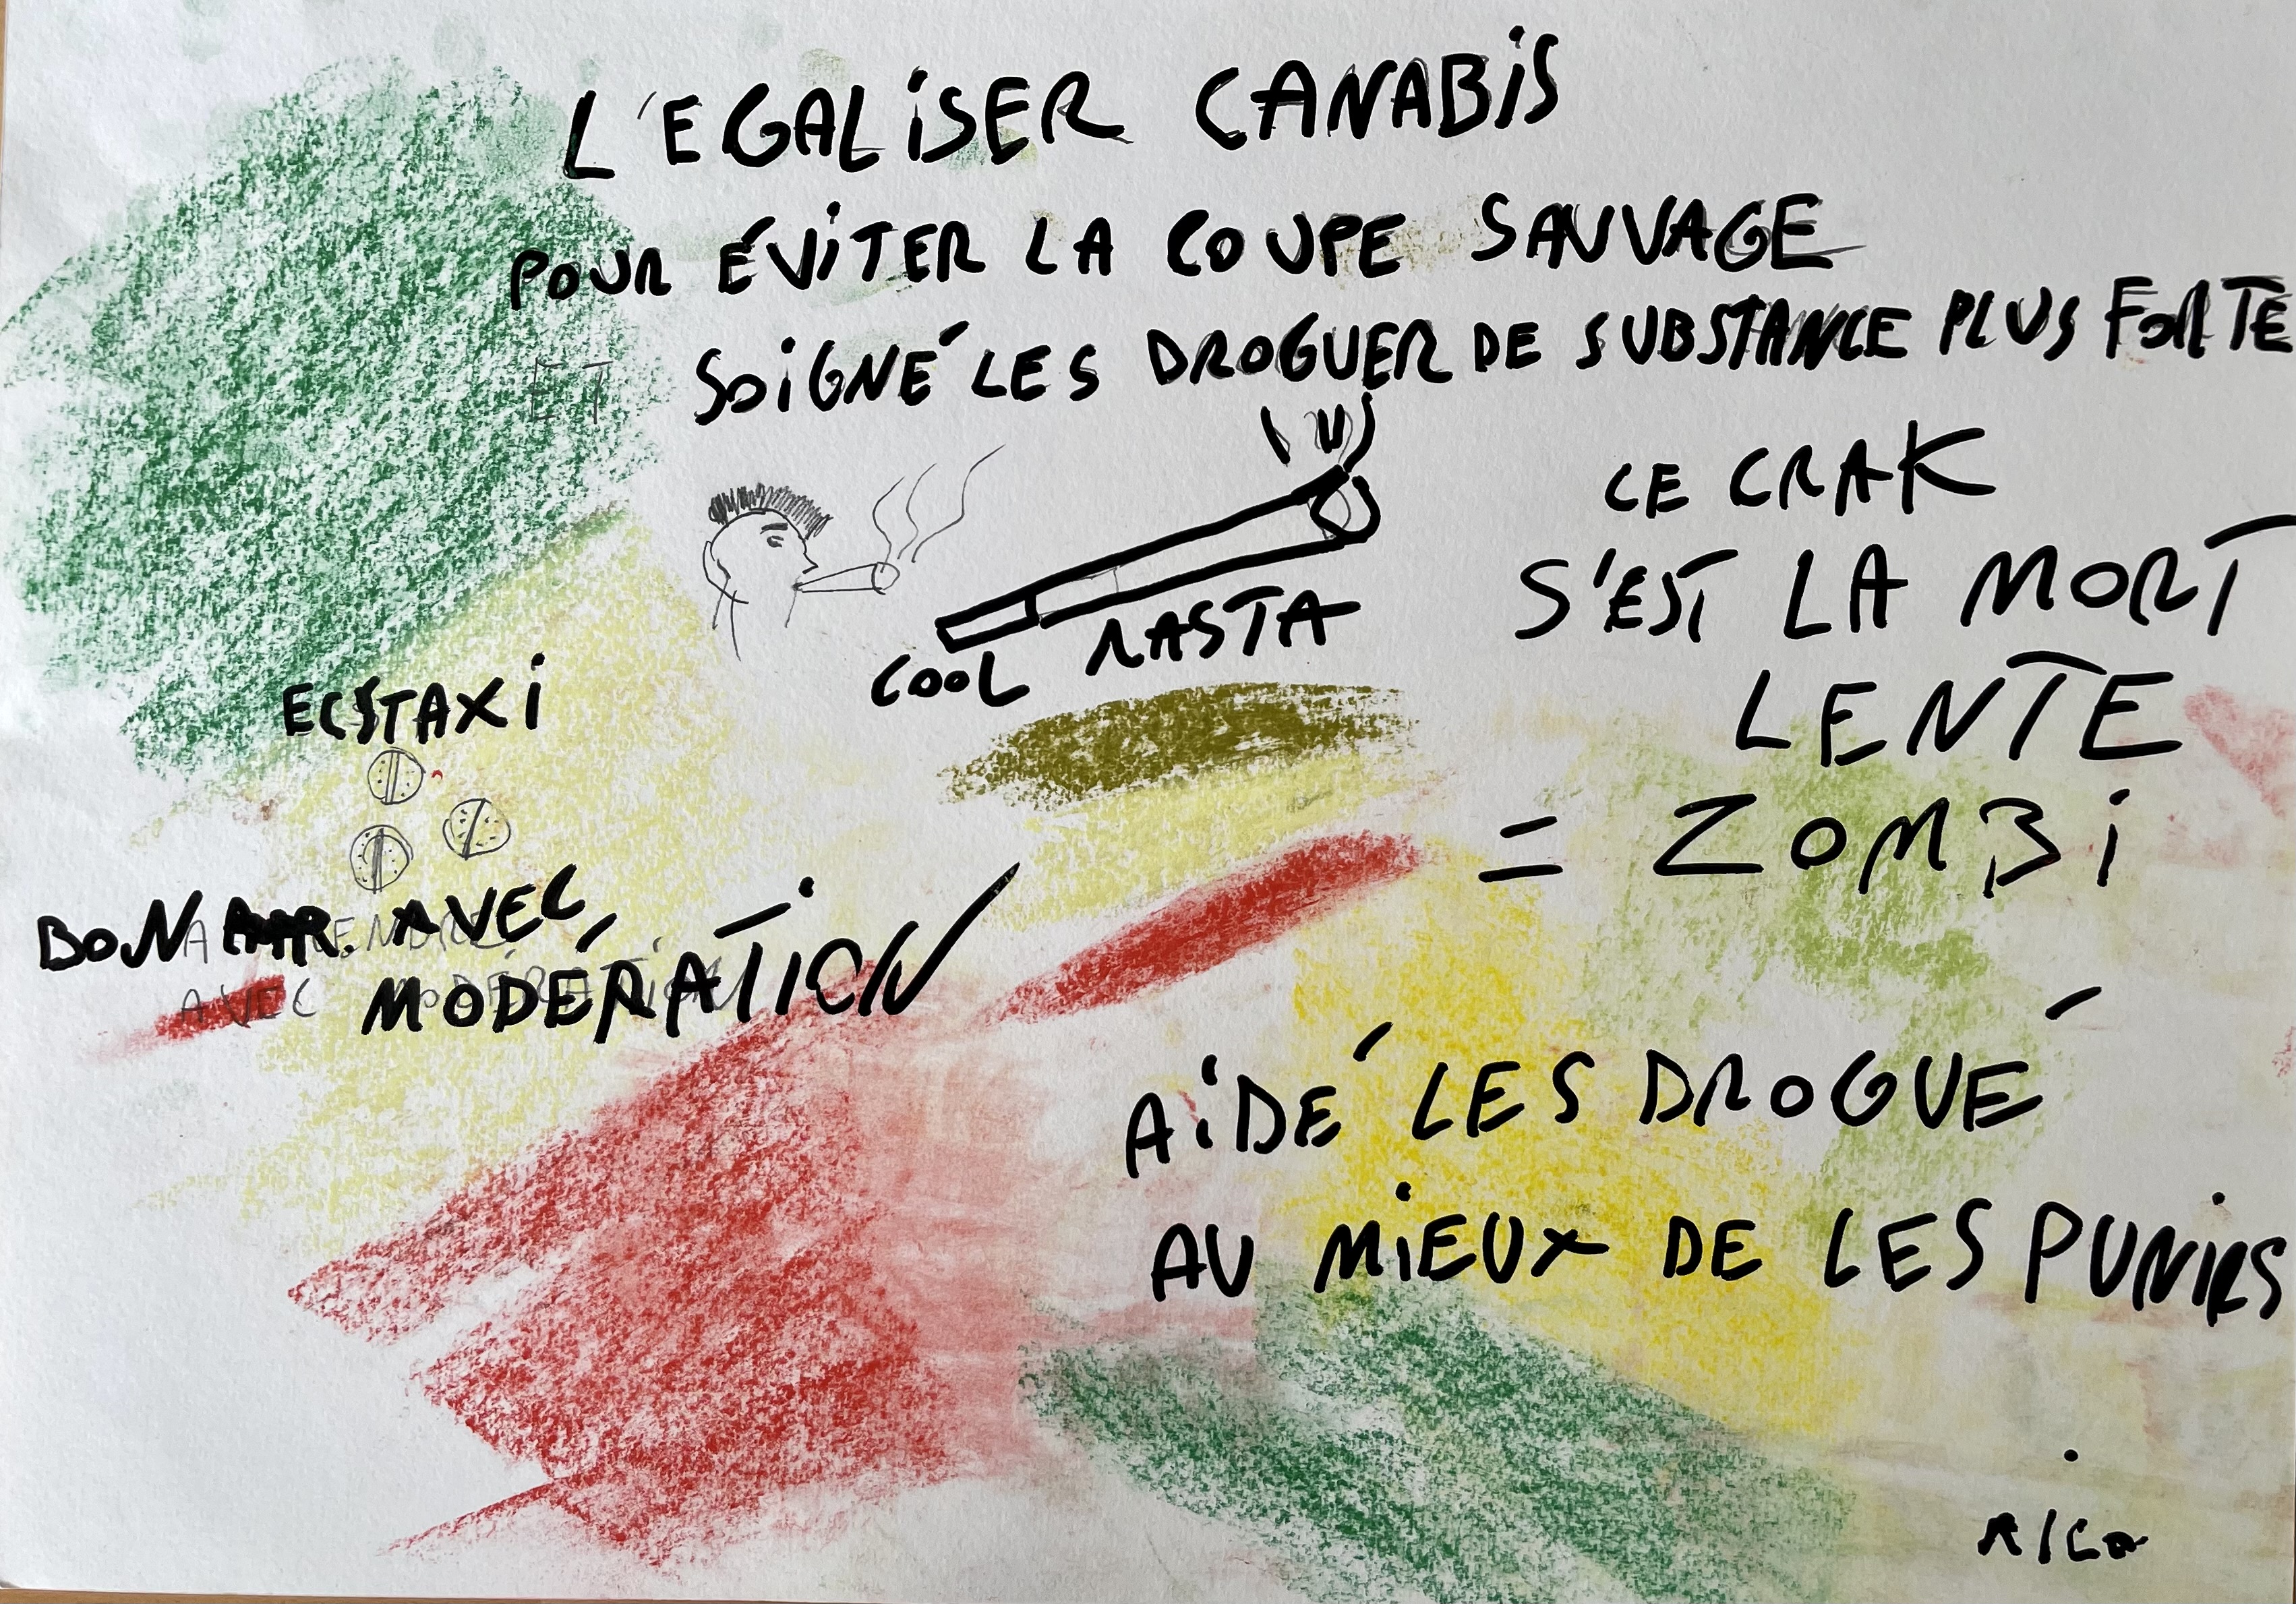 L'EGALiSER CANABiS
POUR ÉViTER LA COUPE SAUVAGE
ET SOiGNÉ LES DROGUER DE SUBSTANCE PLUS FORTE
CE CRAK
S'EST LA MORT
LENTE
= ZOMBi
COOL RASTA
ECSTAXi
BON AVEC
MODÉRATiON
AVEC
AiDÉ LES DROGUÉ
AU MiEUX DE LES PUNiRS